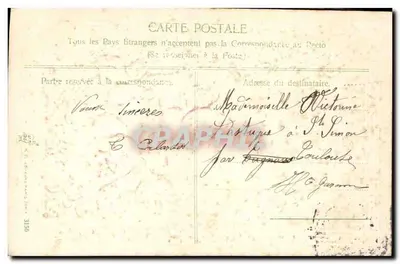 CARTE POSTALE
Tous les Pays Etrangers n'acceptent pas la Correspondance au Recto
(Se renseigner à la Poste)
Partie réservée à la correspondance
Adresse du destinataire
Voeux sincères
Mademoiselle Victorine
à St Simon
par Toulouse
Hte Garonne